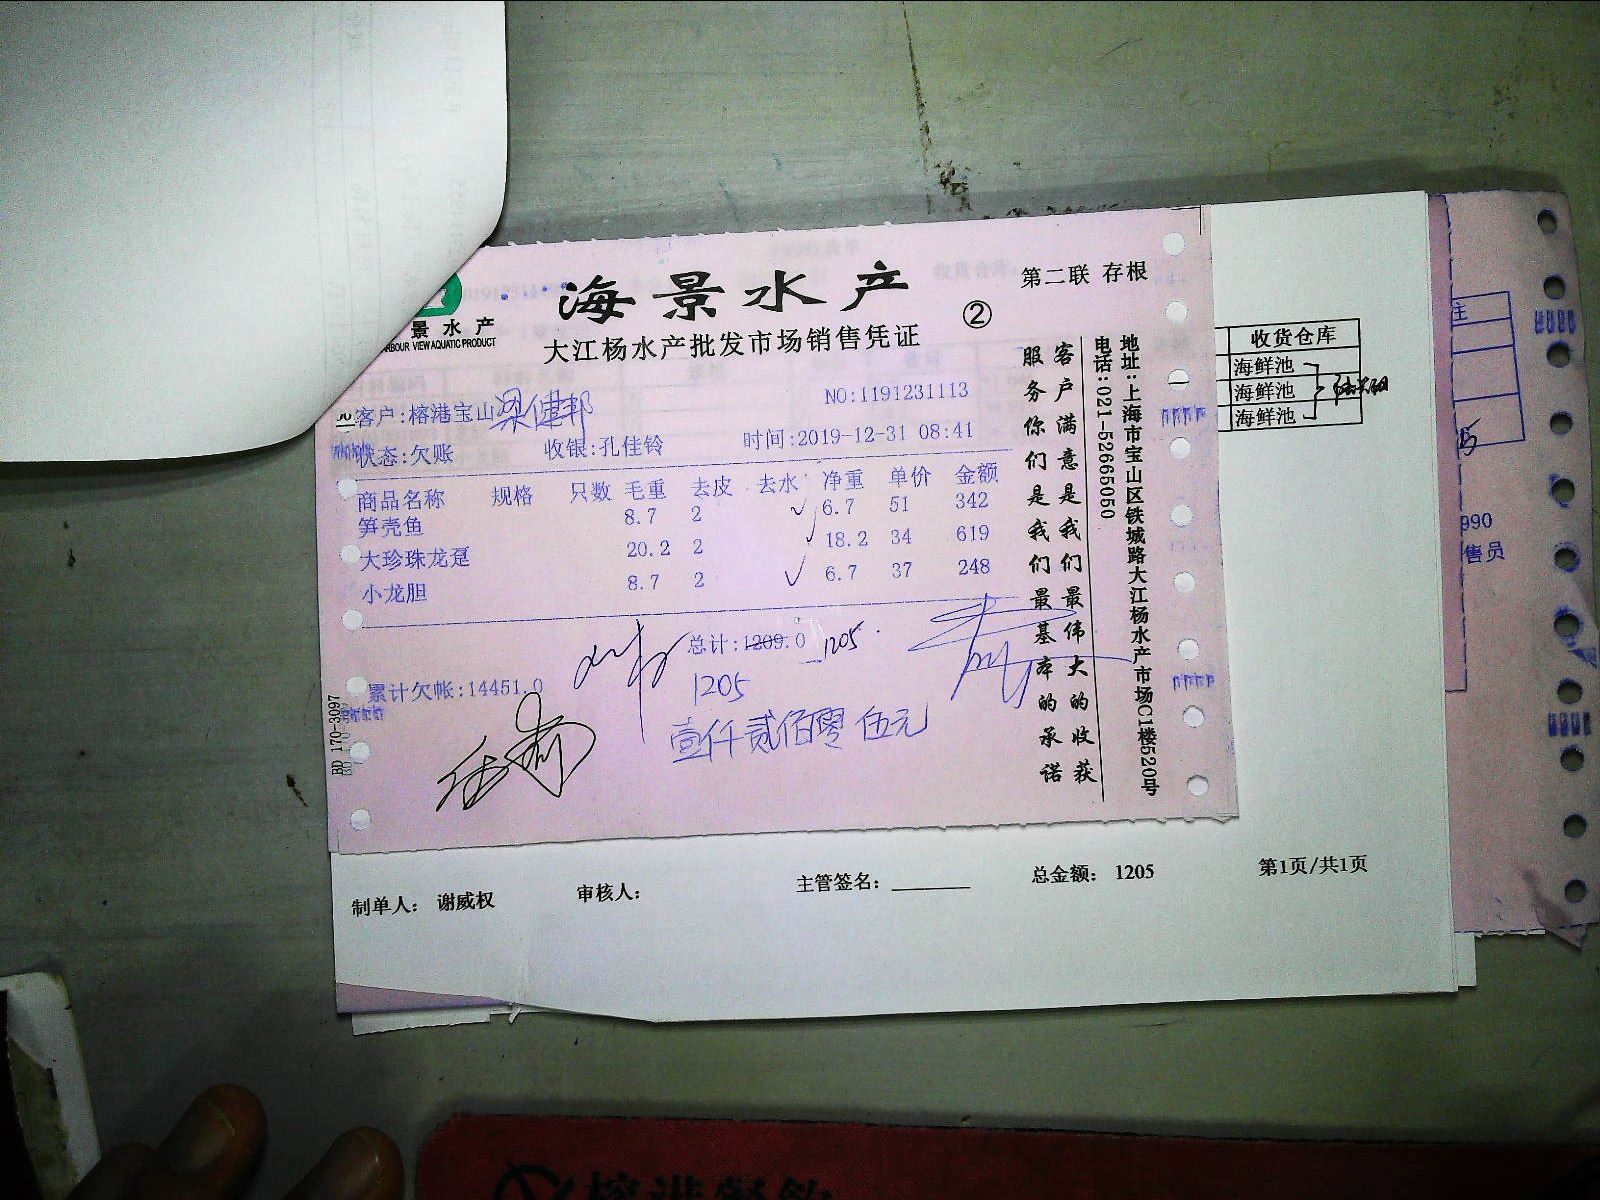 海景水产
大江杨水产批发市场销售凭证
②
第二联 存根
景水产
RBOUR VIEW AQUATIC PRODUCT
客户:榕港宝山 梁健邦
NO:1191231113
状态:欠账
收银:孔佳铃
时间:2019-12-31 08:41
商品名称 规格 只数 毛重 去皮 去水 净重 单价 金额
笋壳鱼 8.7 2 6.7 51 342
大珍珠龙趸 20.2 2 18.2 34 619
小龙胆 8.7 2 6.7 37 248
总计:1209.0 1205
累计欠帐:14451.0
1205
壹仟贰佰零伍元
客户满意是我们最伟大的收获
服务你们是我们最基本的承诺
地址:上海市宝山区铁城路大江杨水产市场C1楼520号
电话:021-52665050
BD 170-3097
收货仓库
海鲜池
海鲜池
海鲜池
990
售员
制单人: 谢威权
审核人:
主管签名:
总金额: 1205
第1页/共1页
榕港餐饮